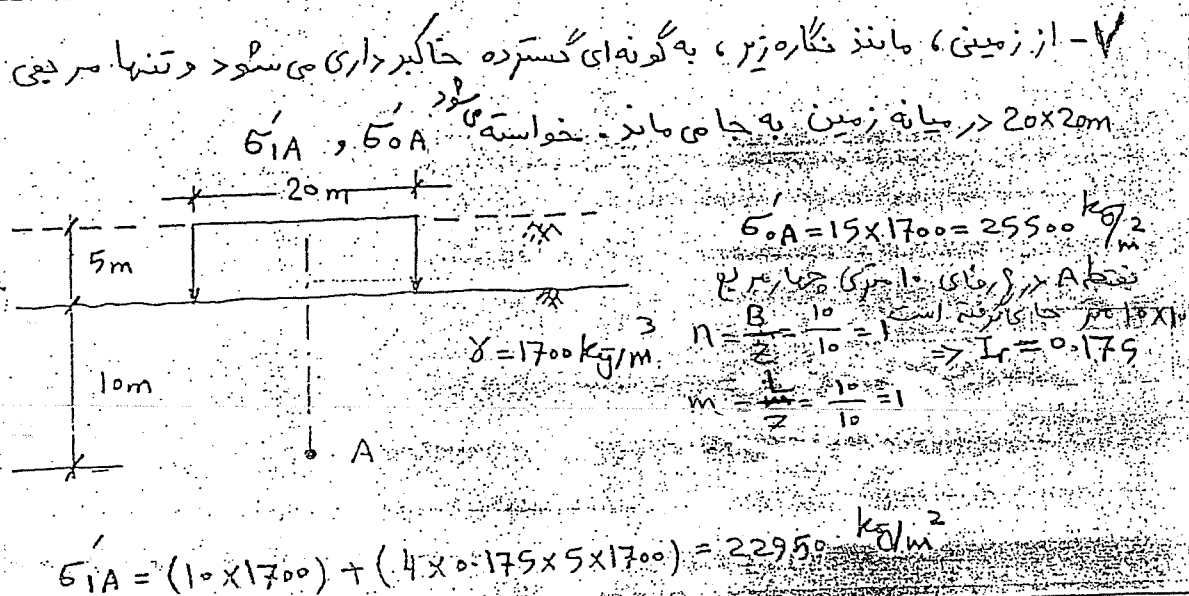 ۷- از زمینی، مانند نگاره زیر، به گونه‌ای گسترده خاکبرداری می شود و تنها مربعی
20x20m در میانه زمین به جا می ماند. خواسته می‌شود σ́₀A و σ́₁A
20m
5m
10m
A
γ=1700 kg/m³
σ́₀A = 15x1700 = 25500 kg/m²
نقطه A در ژرفای ۱۰ متری چهار مربع
10x10 متر جای گرفته است
n = B/z = 10/10 = 1
=> Ir = 0.175
m = L/z = 10/10 = 1
σ́₁A = (10x1700) + (4x0.175x5x1700) = 22950 kg/m²